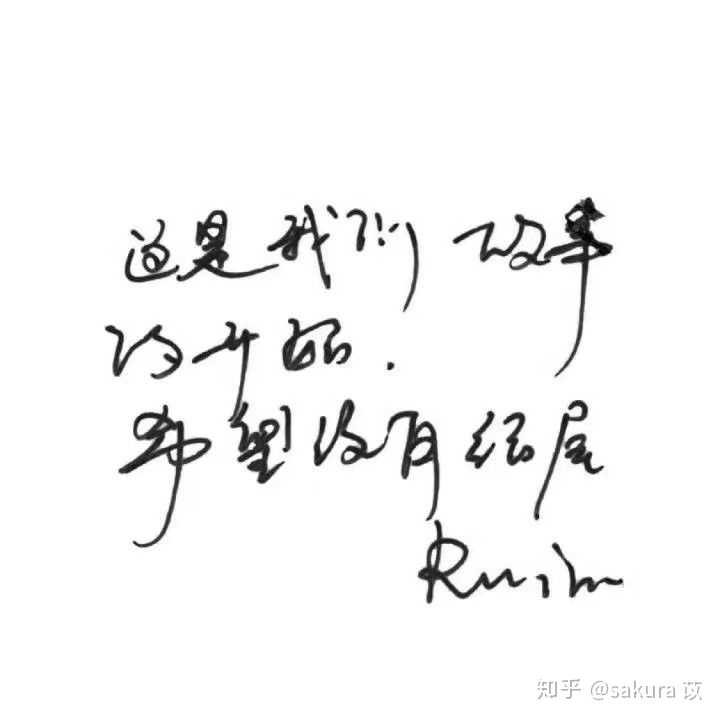 这是我们故事
的开始.
希望没有结尾
知乎 @sakura 苡